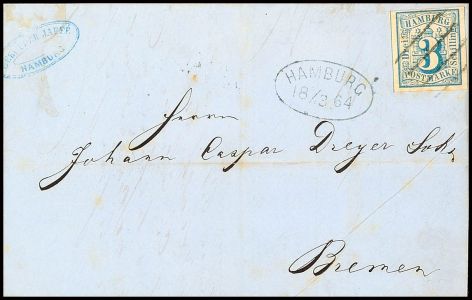 GEBRÜDER JAFFE
HAMBURG
HAMBURG
18/3 64
HAMBURG
3
POSTMARKE
Schilling
Herrn
Johann Caspar Dreyer Sohn
Bremen